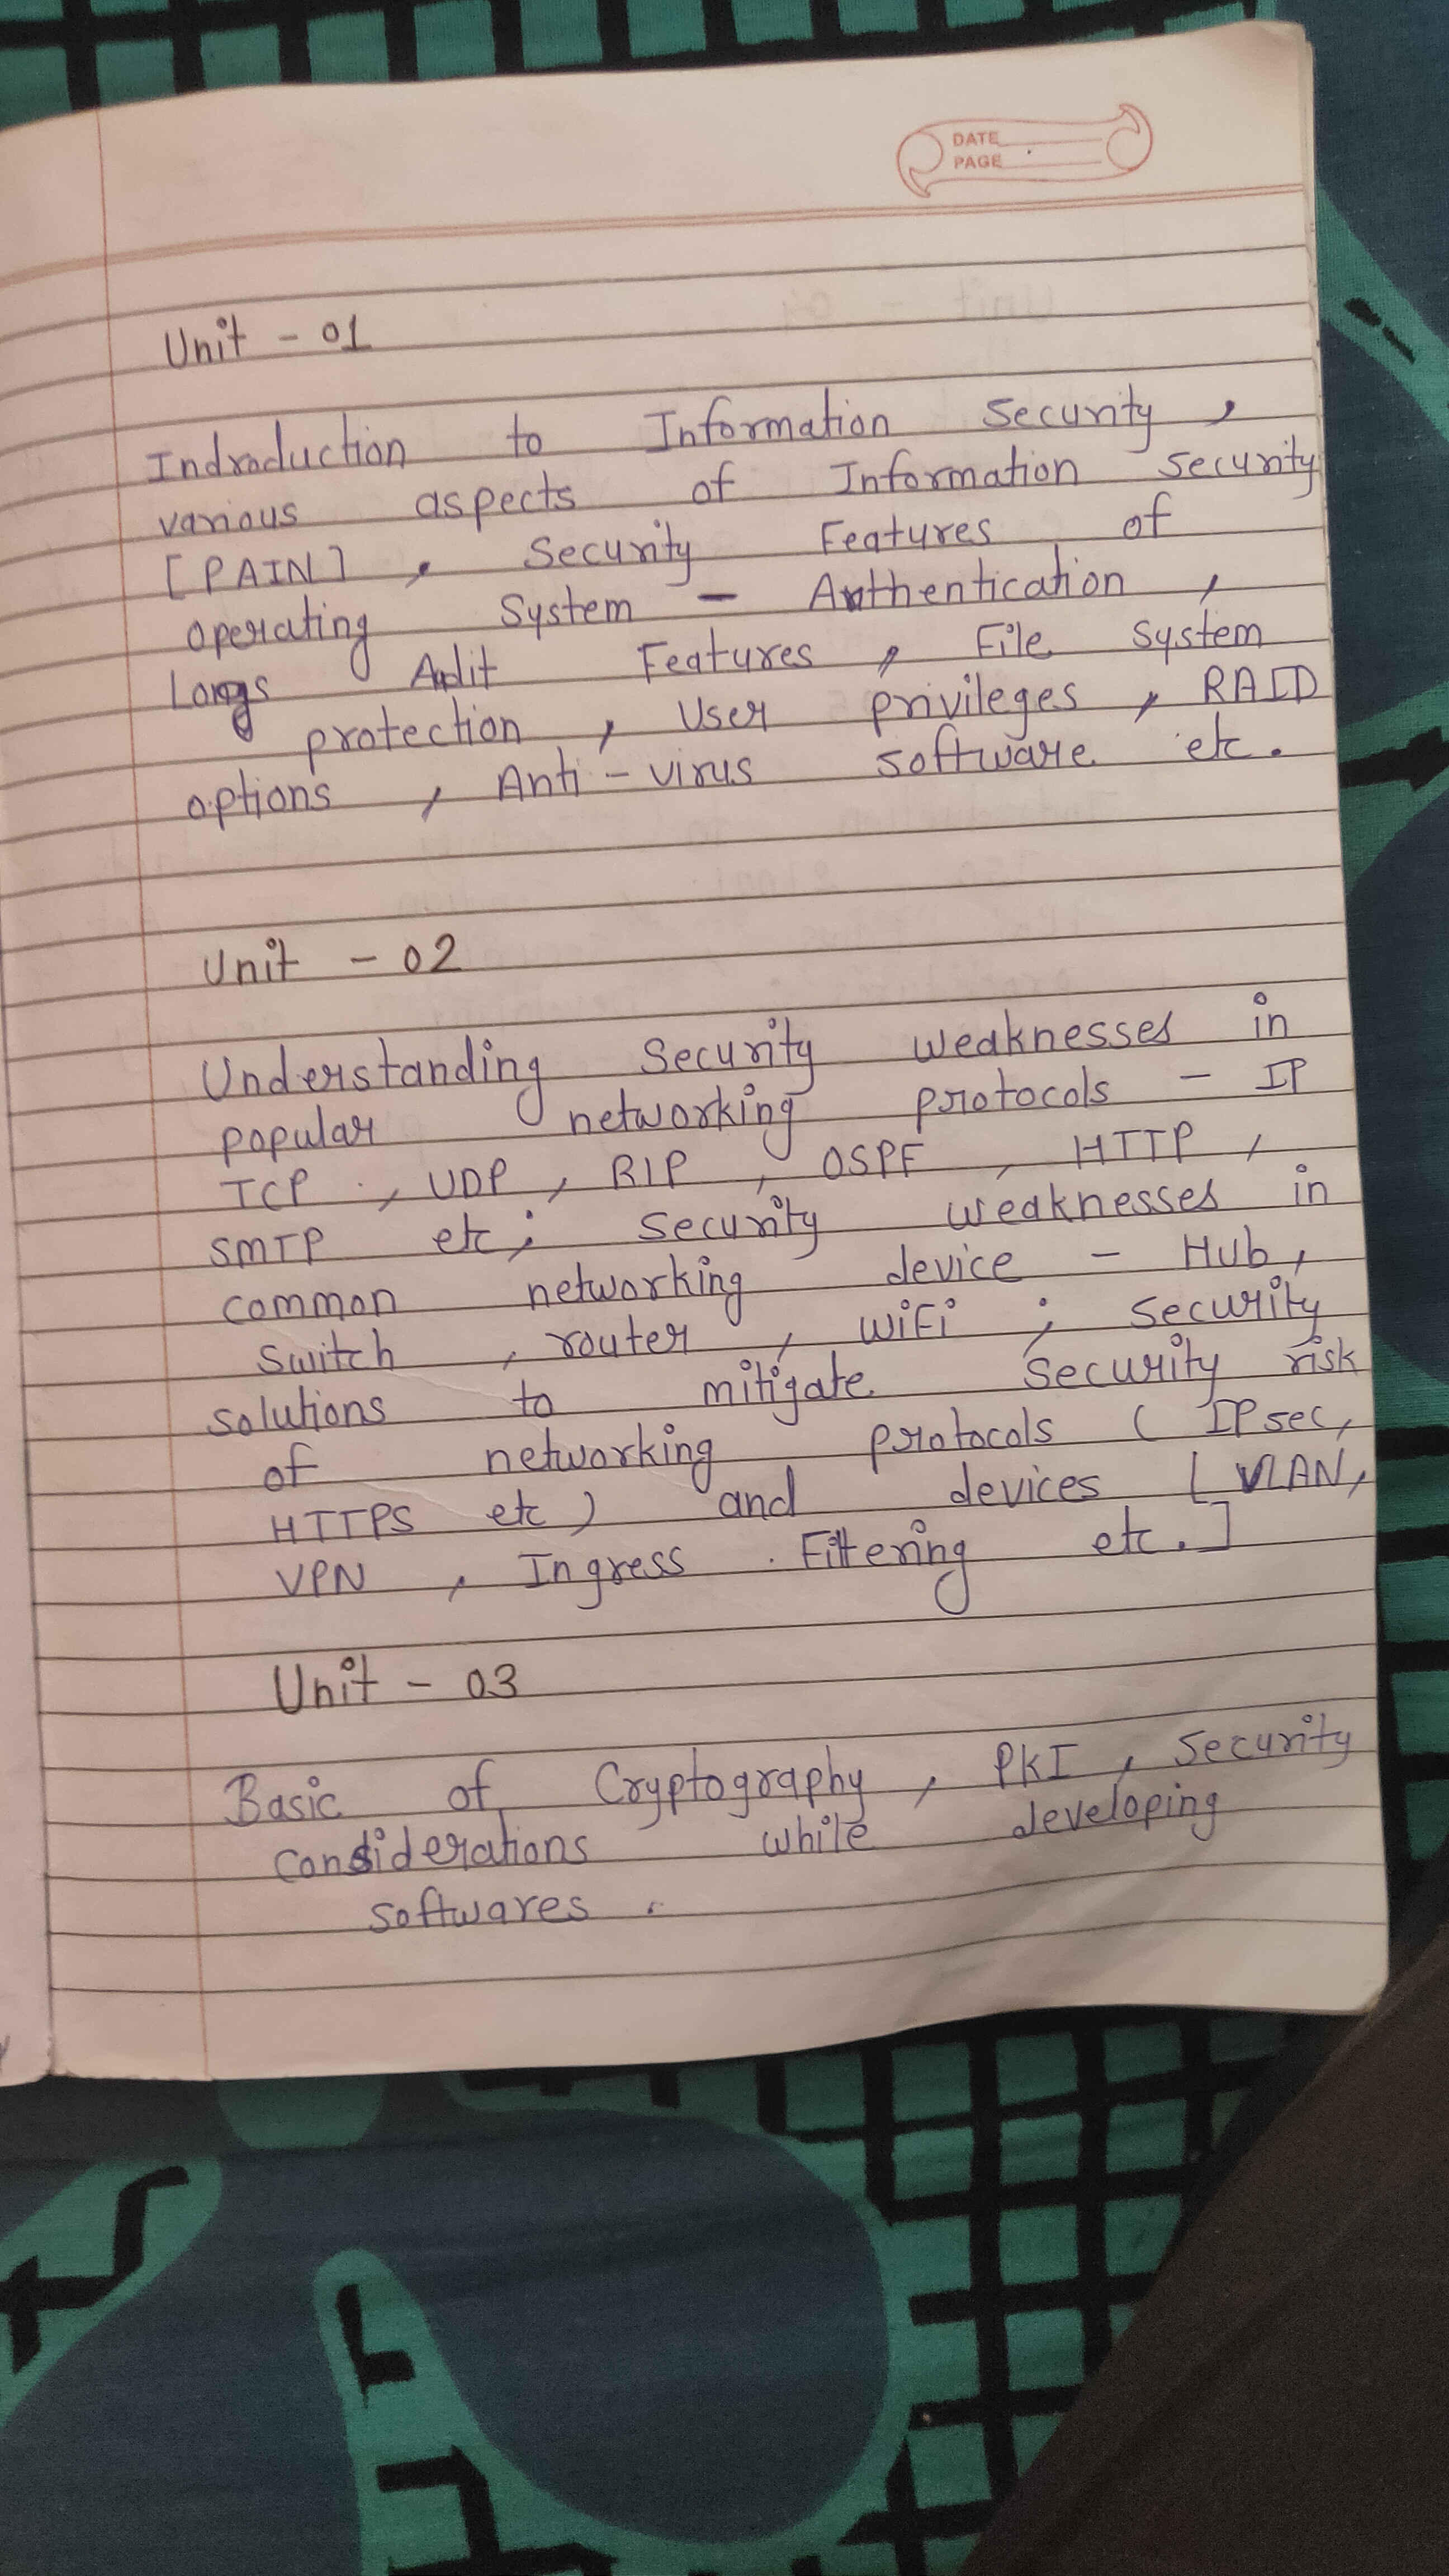 DATE
PAGE
Unit - 01
Indraduction to Information Security,
various aspects of Information security
[PAIN], Security Features of
operating System - Authentication,
Logs Audit Features, File system
protection, User privileges, RAID
options, Anti-virus software etc.
Unit - 02
Understanding Security weaknesses in
popular networking protocols - IP
TCP, UDP, RIP, OSPF, HTTP,
SMTP etc; Security weaknesses in
common networking device - Hub,
Switch, router, WiFi; security
solutions to mitigate security risk
of networking protocols (IPsec,
HTTPS etc) and devices [VLAN,
VPN, Ingress Filtering etc.]
Unit - 03
Basic of Cryptography, PKI, Security
considerations while developing
softwares.